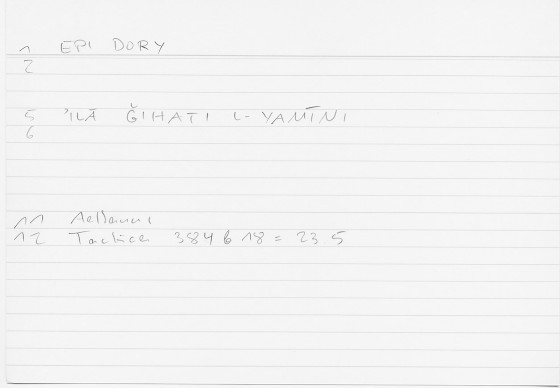 1 EPI DORY
2
5 'ILĀ ǦIHATI L-YAMĪNI
6
11 Aeliani
12 Tactica 384 b 18 = 23 5